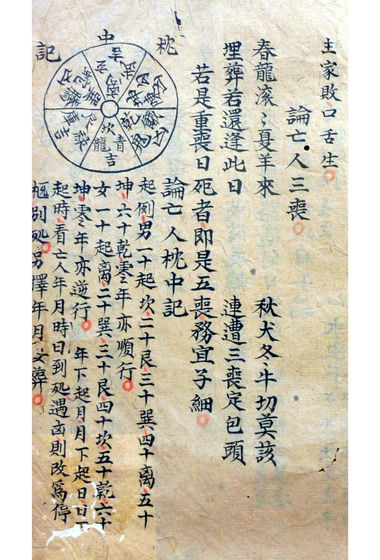 主家敗口舌生
論亡人三喪
春龍滚〻夏羊來 秋犬冬牛切莫該
埋葬若還逢此日 連遭三喪定包頭
若是重喪日死者即是五喪務宜子細
論亡人枕中記
起例男一十起坎二十艮三十巽四十离五十
坤六十乾零年亦順行
女一十起离二十巽三十艮四十坎五十乾六十
坤零年亦逆行 年下起月月下起日日下
起時看亡人年月時日到死遇凶則改為停
别死另擇年月安葬
枕中記
坎
青龍
吉